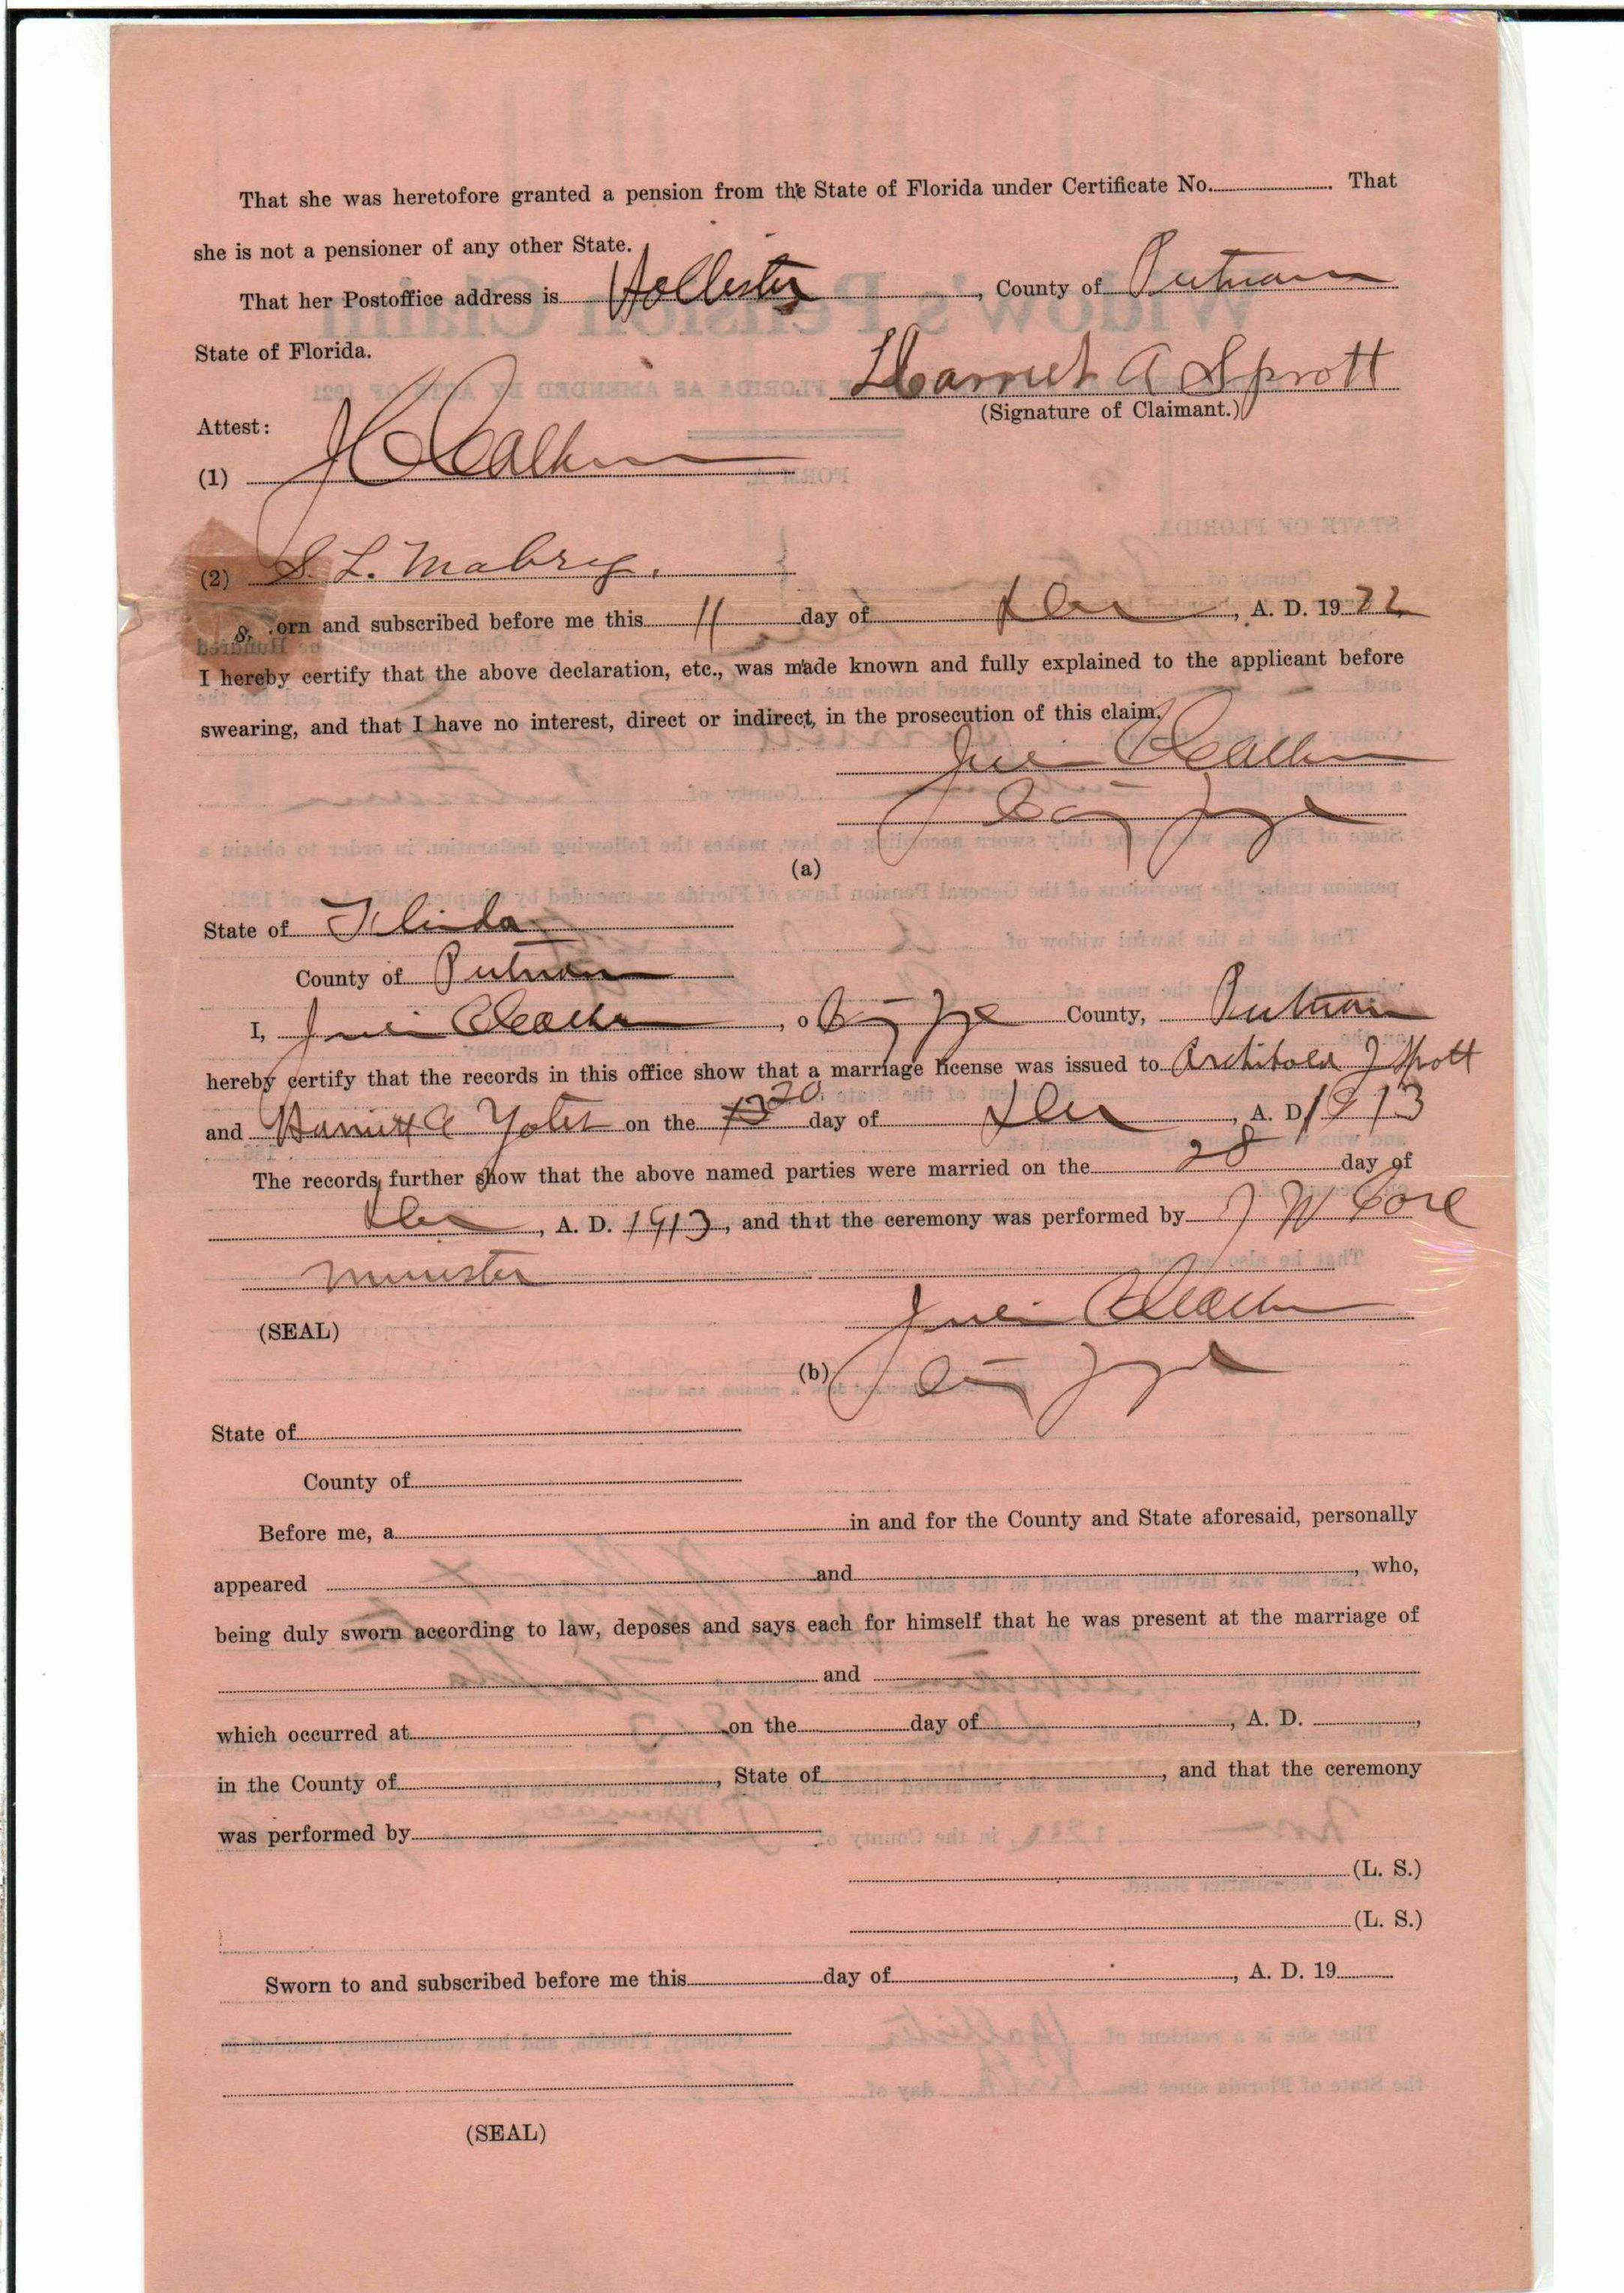 That she was heretofore granted a pension from the State of Florida under Certificate No. ............ That
she is not a pensioner of any other State.
That her Postoffice address is Hollister, County of Putnam
State of Florida.
Harriet A Sprott
(Signature of Claimant.)
Attest:
(1) J C Calhoun
(2) S. L. Mabrey.
orn and subscribed before me this 11 day of Dec, A. D. 1922
I hereby certify that the above declaration, etc., was made known and fully explained to the applicant before
swearing, and that I have no interest, direct or indirect, in the prosecution of this claim.
Calhoun
Co Judge
(a)
State of Florida
County of Putnam
I, Calhoun, Co Judge County, Putnam
hereby certify that the records in this office show that a marriage license was issued to Archibald J Sprott
and Harriett A Yates on the 20 day of Dec, A. D 1913
The records further show that the above named parties were married on the 28 day of
Dec, A. D. 1913, and that the ceremony was performed by J W
Minister
(SEAL)
Calhoun
Co Judge
(b)
State of
County of
Before me, a in and for the County and State aforesaid, personally
appeared and , who,
being duly sworn according to law, deposes and says each for himself that he was present at the marriage of
and
which occurred at on the day of , A. D. ,
in the County of , State of , and that the ceremony
was performed by
(L. S.)
(L. S.)
Sworn to and subscribed before me this day of , A. D. 19
(SEAL)